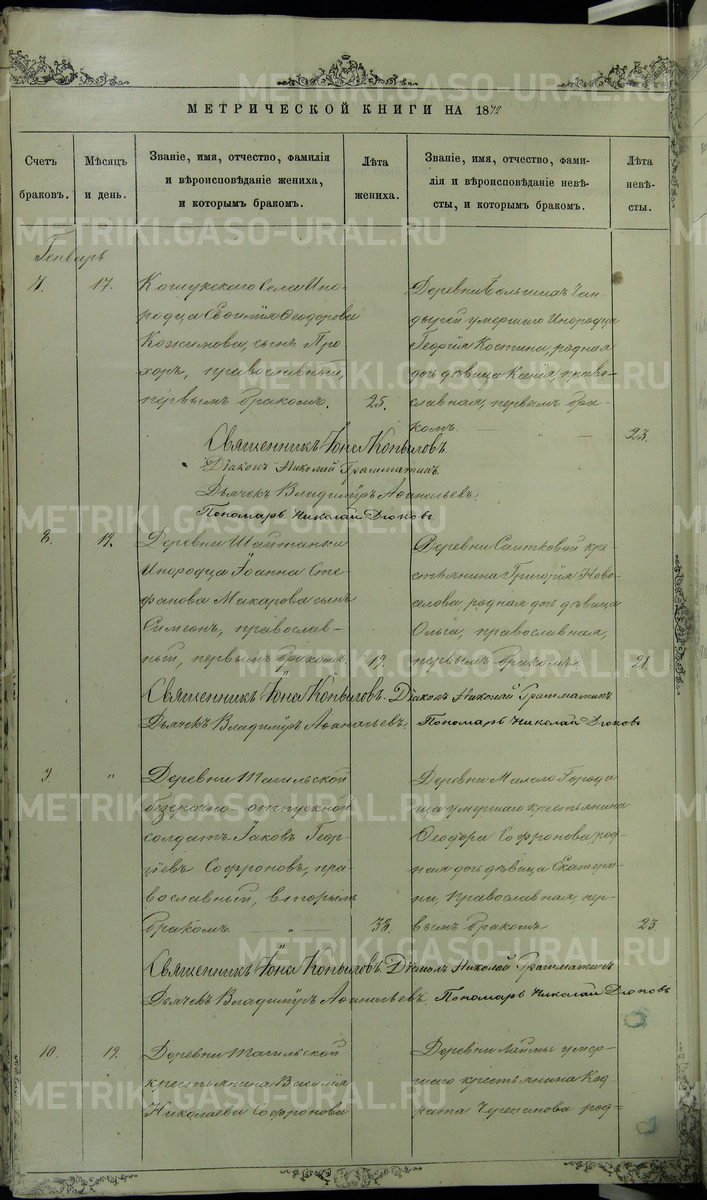 МЕТРИЧЕСКОЙ КНИГИ НА 1872
Счетъ браковъ.
Мѣсяцъ и день.
Званіе, имя, отчество, фамилія
и вѣроисповѣданіе жениха,
и которымъ бракомъ.
Лѣта жениха.
Званіе, имя, отчество, фами-
лія и вѣроисповѣданіе невѣ-
сты, и которымъ бракомъ.
Лѣта невѣ-
сты.
Генварь
17.
Кошукскаго Села Ино-
родца Евгенія Ѳеодорова
Кожимова, сынъ Про
хоръ, православный,
первымъ бракомъ.
25.
Деревни Большихъ
умершаго Инородца
Георгія Костина, родная
дочь дѣвица Ксенія, право-
славная, первымъ бра-
комъ.
23.
Священникъ Іона Копыловъ.
Діаконъ Николай Грамматинъ.
Дьячекъ Владиміръ Аѳанасьевъ.
Пономарь Николай Дюковъ
8.
19.
Деревни Шайтанки
Инородца Іоанна Сте
фанова Макарова сынъ
Симеонъ, православ-
ный, первымъ бракомъ.
19.
Деревни Ситковой кре
стьянина Григорія Ново
селова, родная дочь дѣвица
Ольга, православная,
первымъ бракомъ.
21.
Священникъ Іона Копыловъ. Діаконъ Николай Грамматинъ
Дьячекъ Владиміръ Аѳанасьевъ. Пономарь Николай Дюковъ
9.
"
Деревни Тагильской
безсрочно отпускной
солдатъ Іаковъ Геор-
гіевъ Софроновъ, пра
вославный, вторымъ
бракомъ.
38.
Деревни Малаго Городи
ща умершаго крестьянина
Ѳеодора Софронова, род-
ная дочь дѣвица Екатери-
на, православная, пер-
вымъ бракомъ.
23
Священникъ Іона Копыловъ. Діаконъ Николай Грамматинъ
Дьячекъ Владиміръ Аѳанасьевъ. Пономарь Николай Дюковъ
10.
19.
Деревни Тагильской
крестьянина Василія
Николаева Софронова
Деревни Лаймы умер-
шаго крестьянина Код
рата Черепанова род=
METRIKI.GASO-URAL.RU